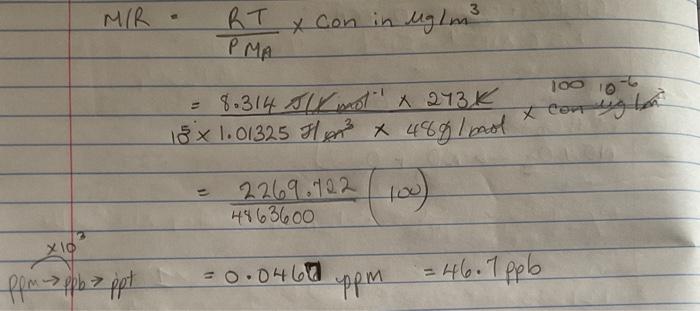 M/R = RT / PMA × Con in µg/m³
= 8.314 J/K mol⁻¹ × 273K / 10⁵ × 1.01325 J/m³ × 48g/mol × 100 10⁻⁶ con µg/m³
= 2269.722 / 4863600 (100)
×10³
ppm → ppb → ppt = 0.0467 ppm = 46.7 ppb